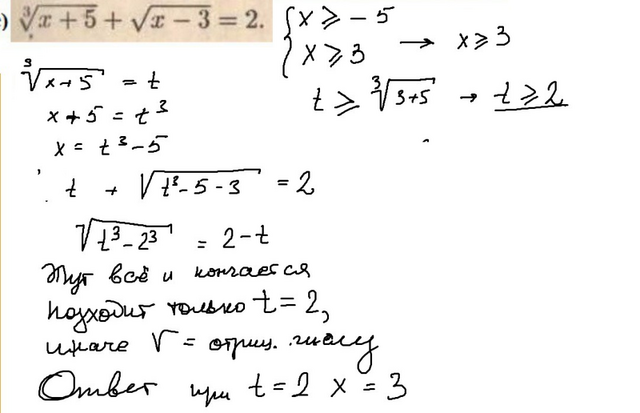 ) ∛(x + 5) + √(x − 3) = 2.
{ x ⩾ − 5
x ⩾ 3 → x ⩾ 3
∛(x + 5) = t
t ⩾ ∛(3+5) → t ⩾ 2
x + 5 = t³
x = t³ − 5
t + √(t³ − 5 − 3) = 2
√(t³ − 2³) = 2 − t
Тут всё и кончается
подходит только t = 2,
иначе √ = отриц. числу
Ответ при t = 2 x = 3